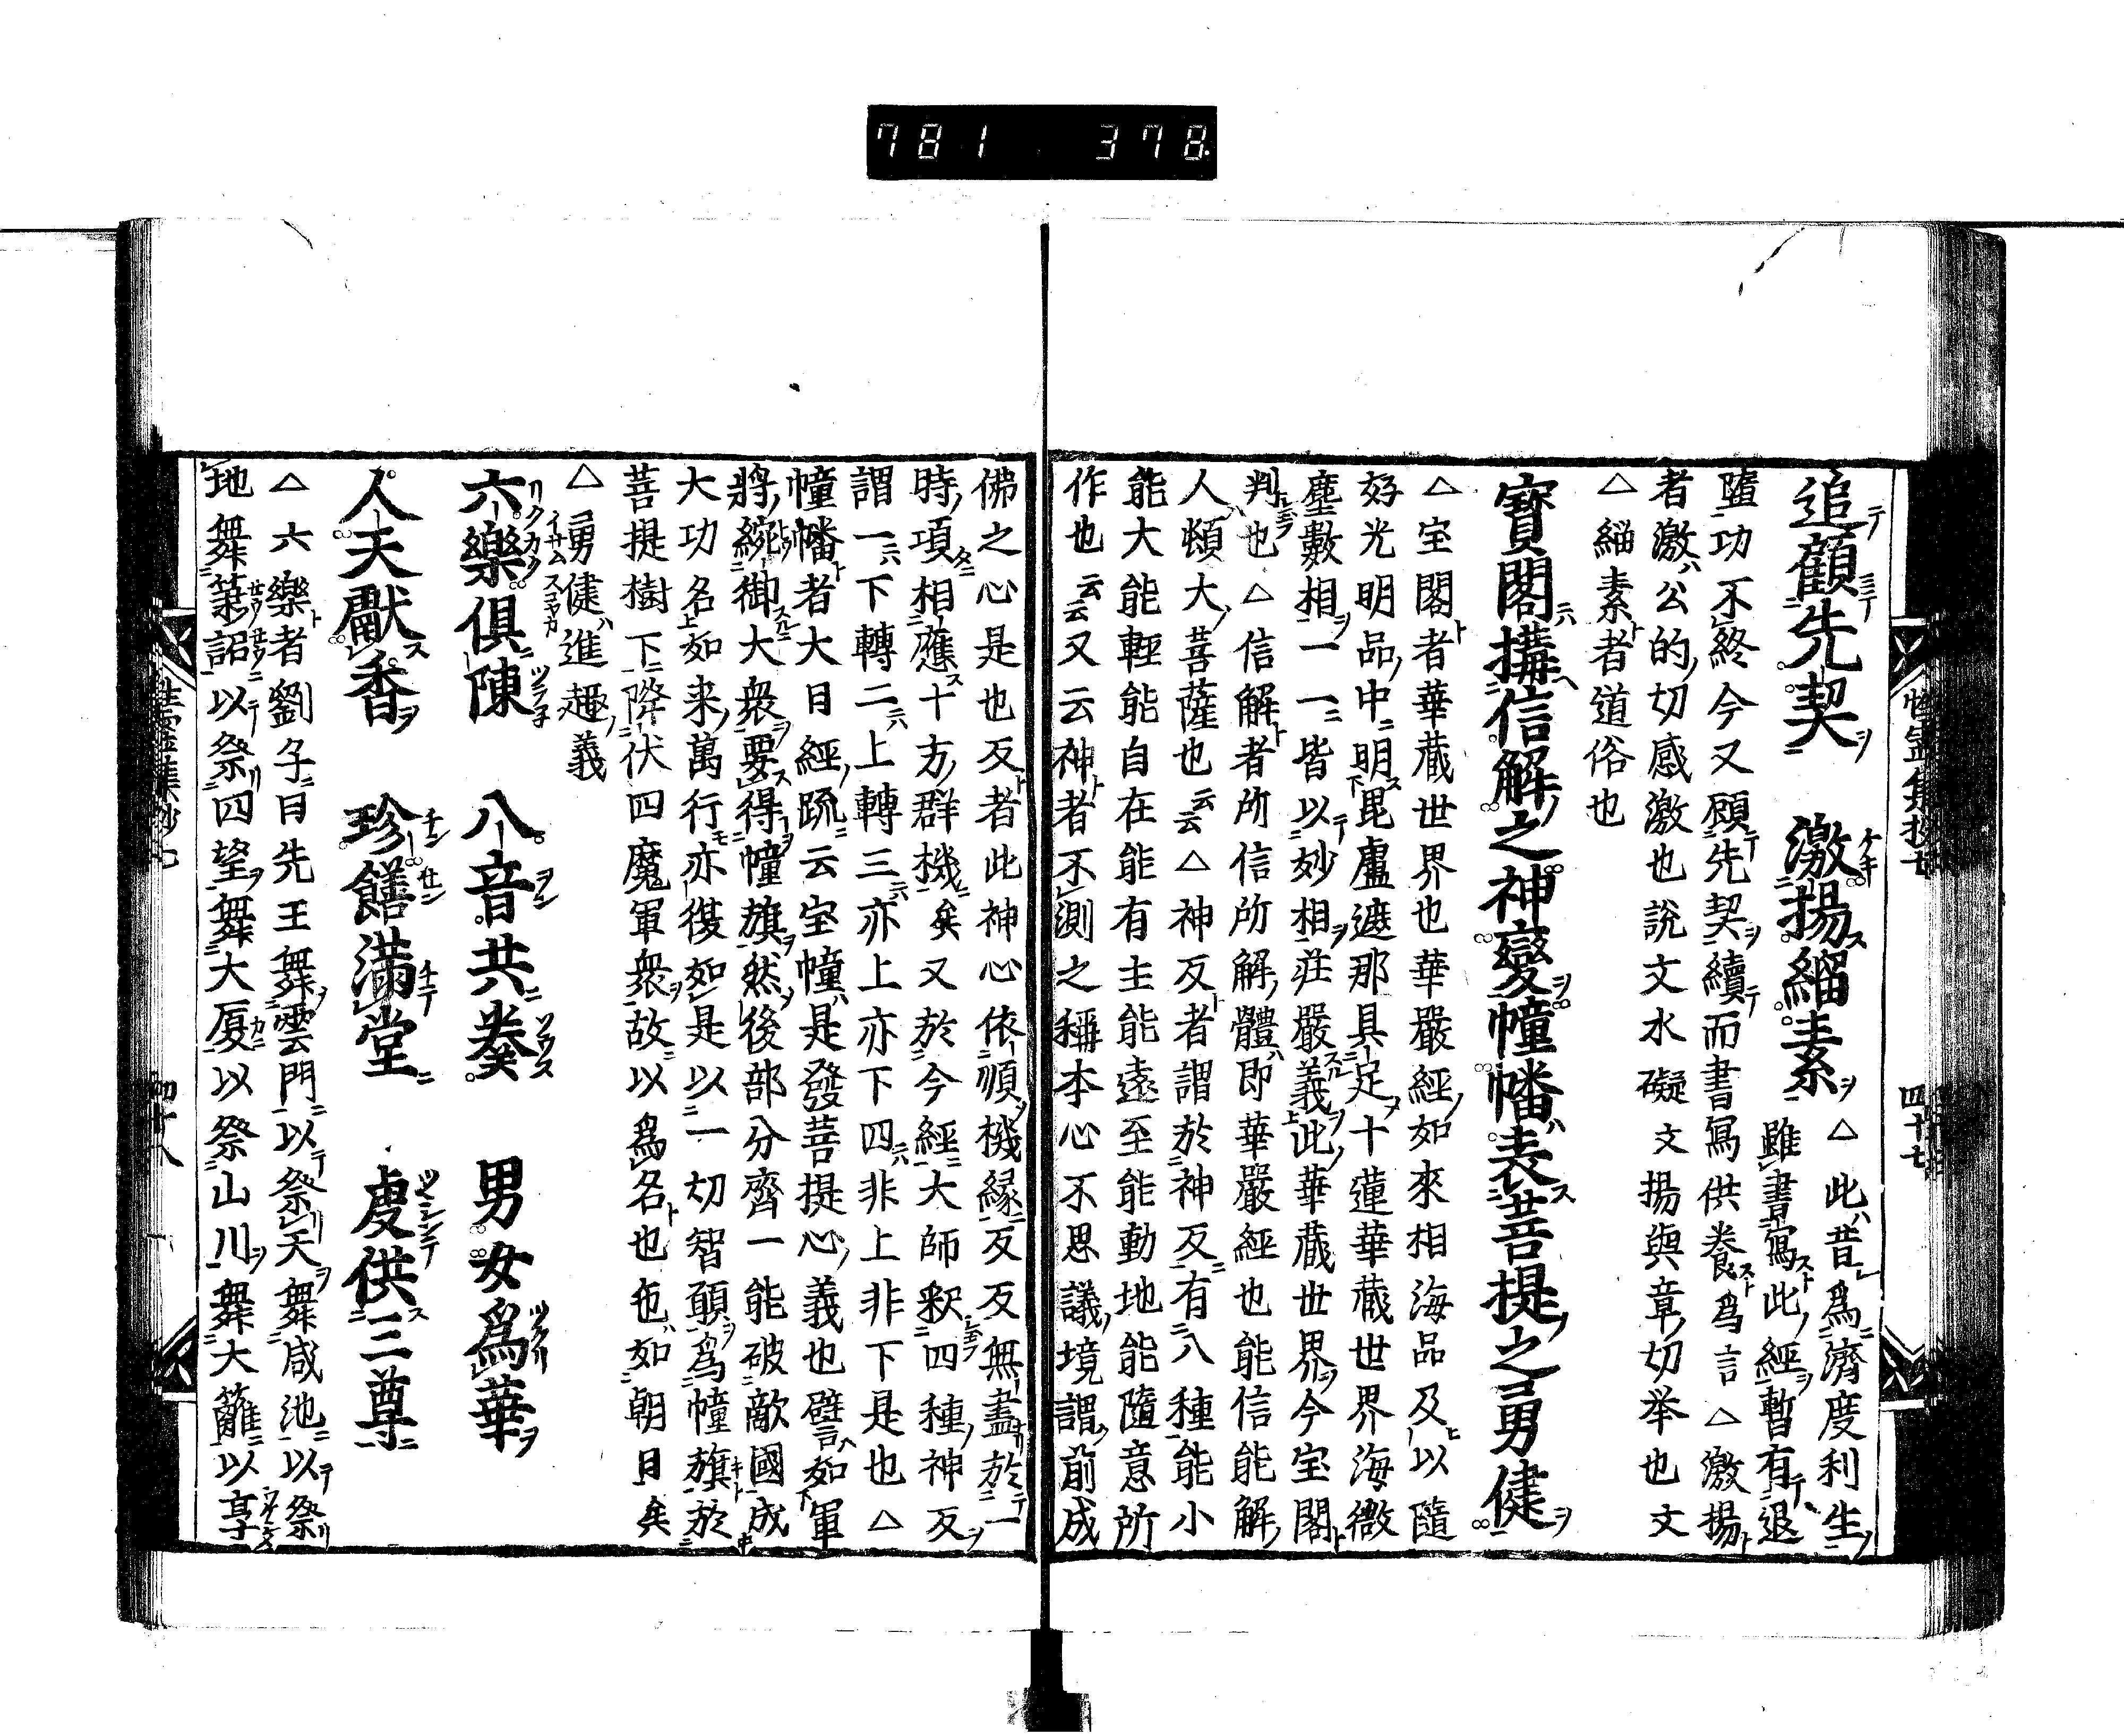 781 378.
追顧先契 激揚緇素 △此昔爲濟度利生
雖書寫此經暫有退
墮功不終今又顧先契續而書寫供養爲言△激揚
者激公的切感激也說文水礙文揚與章切举也文
△緇素者道俗也
寶閣搆信解之神變幢幡表菩提之勇健
△宝閣者華蔵世界也華嚴經如來相海品及以隨
好光明品中明毘盧遮那具足十蓮華蔵世界海微
塵數相一一皆以妙相莊嚴義此華蔵世界今宝閣
判也△信解者所信所解體即華嚴経也能信能解
人頓大菩薩也云云△神反者謂於神反有八種能小
能大能輕能自在能有主能遠至能動地能隨意所
作也云云又云神者不測之稱本心不思議境謂前成
佛之心是也反者此神心依順機縁反反無盡於一
時項相應十方群機矣又於今經大師釈四種神反
謂一下轉二上轉三亦上亦下四非上非下是也△
幢幡者大日經疏云宝幢是發菩提心義也譬如軍
將統御大衆要得幢旗然後部分齊一能破敵國成
大功名如来萬行亦復如是以一切智願爲幢旗於
菩提樹下降伏四魔軍衆故以爲名也色如朝日矣
△勇健進趣義
六樂俱陳 八音共奏 男女爲華
人天獻香 珍饍満堂 虔供三尊
△六樂者劉子曰先王舞雲門以祭天舞咸池以祭
地舞箾韶以祭四望舞大厦以祭山川舞大䕶以享
四十七
四十八